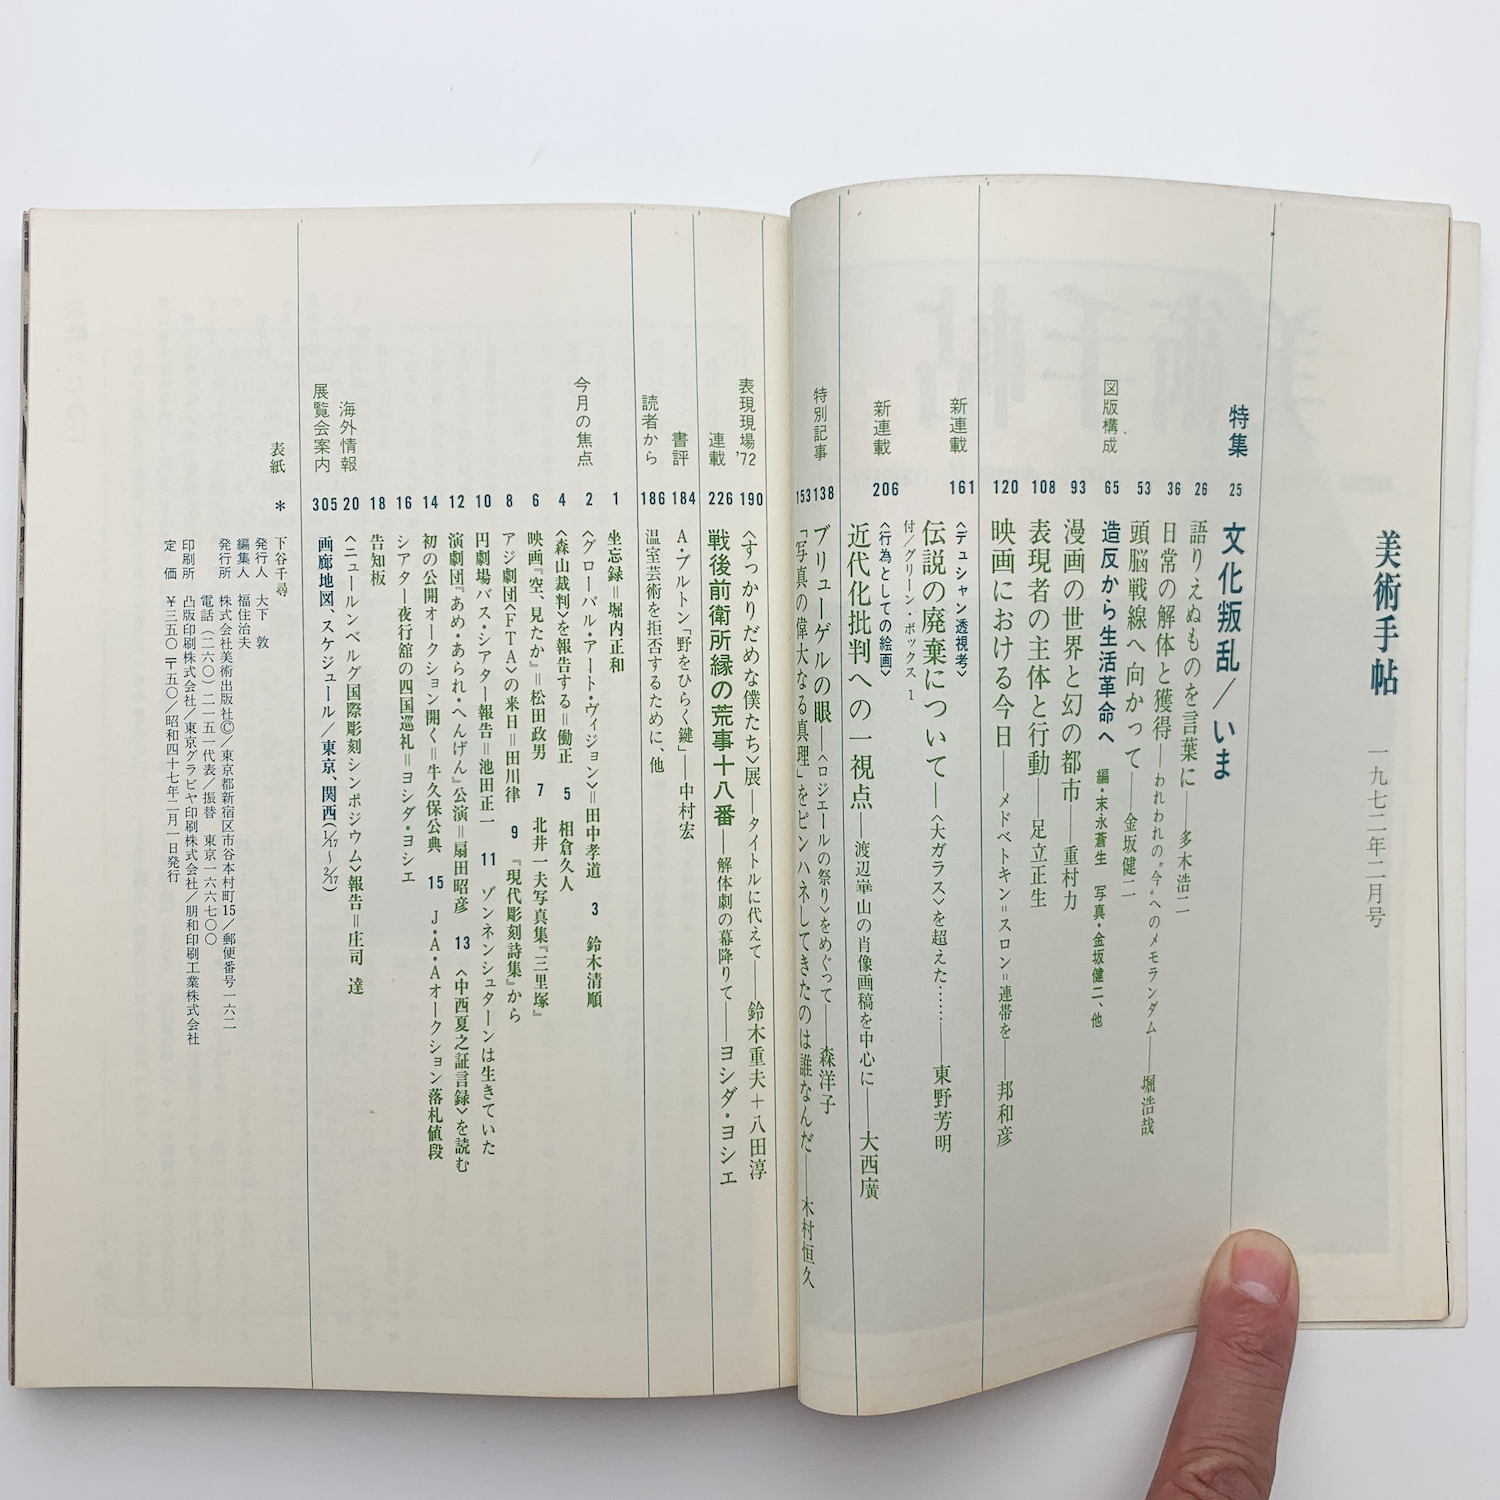 美術手帖 一九七二年二月号
特集 25 文化叛乱／いま
26 語りえぬものを言葉に——多木浩二
36 日常の解体と獲得——われわれの〝今〟へのメモランダム——堀浩哉
53 頭脳戦線へ向かって——金坂健二
図版構成 65 造反から生活革命へ 編・末永蒼生 写真・金坂健二、他
93 漫画の世界と幻の都市——重村力
108 表現者の主体と行動——足立正生
120 映画における今日——メドベトキン=スロン=連帯を——邦和彦
新連載 161 〈デュシャン透視考〉
伝説の廃棄について——〈大ガラス〉を超えた……——東野芳明
付／グリーン・ボックス 1
新連載 206 〈行為としての絵画〉
近代化批判への一視点——渡辺崋山の肖像画稿を中心に——大西廣
特別記事 138 ブリューゲルの眼——〈ロジエールの祭り〉をめぐって——森洋子
153 「写真の偉大なる真理」をピンハネしてきたのは誰なんだ——木村恒久
表現現場'72 190 〈すっかりだめな僕たち〉展——タイトルに代えて——鈴木重夫＋八田淳
連載 226 戦後前衛所縁の荒事十八番——解体劇の幕降りて——ヨシダ・ヨシエ
書評 184 A・ブルトン「野をひらく鍵」——中村宏
読者から 186 温室芸術を拒否するために、他
今月の焦点 1 坐忘録＝堀内正和
2 〈グローバル・アート・ヴィジョン〉＝田中孝道 3 鈴木清順
4 〈森山裁判〉を報告する＝働正 5 相倉久人
6 映画『空、見たか』＝松田政男 7 北井一夫写真集『三里塚』
8 アジ劇団〈FTA〉の来日＝田川律 9 『現代彫刻詩集』から
10 円劇場バス・シアター報告＝池田正一 11 ゾンネンシュターンは生きていた
12 演劇団『あめ・あられ・へんげん』公演＝扇田昭彦 13 〈中西夏之証言録〉を読む
14 初の公開オークション開く＝牛久保公典 15 J・A・Aオークション落札値段
16 シアター夜行舘の四国巡礼＝ヨシダ・ヨシエ
18 告知板
海外情報 20 〈ニュールンベルグ国際彫刻シンポジウム〉報告＝庄司 達
展覧会案内 305 画廊地図、スケジュール／東京、関西（1/17～2/17）
表紙 ＊ 下谷千尋
発行人 大下 敦
編集人 福住治夫
発行所 株式会社美術出版社©／東京都新宿区市谷本村町15／郵便番号一六二
電話（二六〇）二一五一代表／振替 東京一六六七〇〇
印刷所 凸版印刷株式会社／東京グラビヤ印刷株式会社／朋和印刷工業株式会社
定 価 ￥三五〇 〒五〇／昭和四十七年二月一日発行